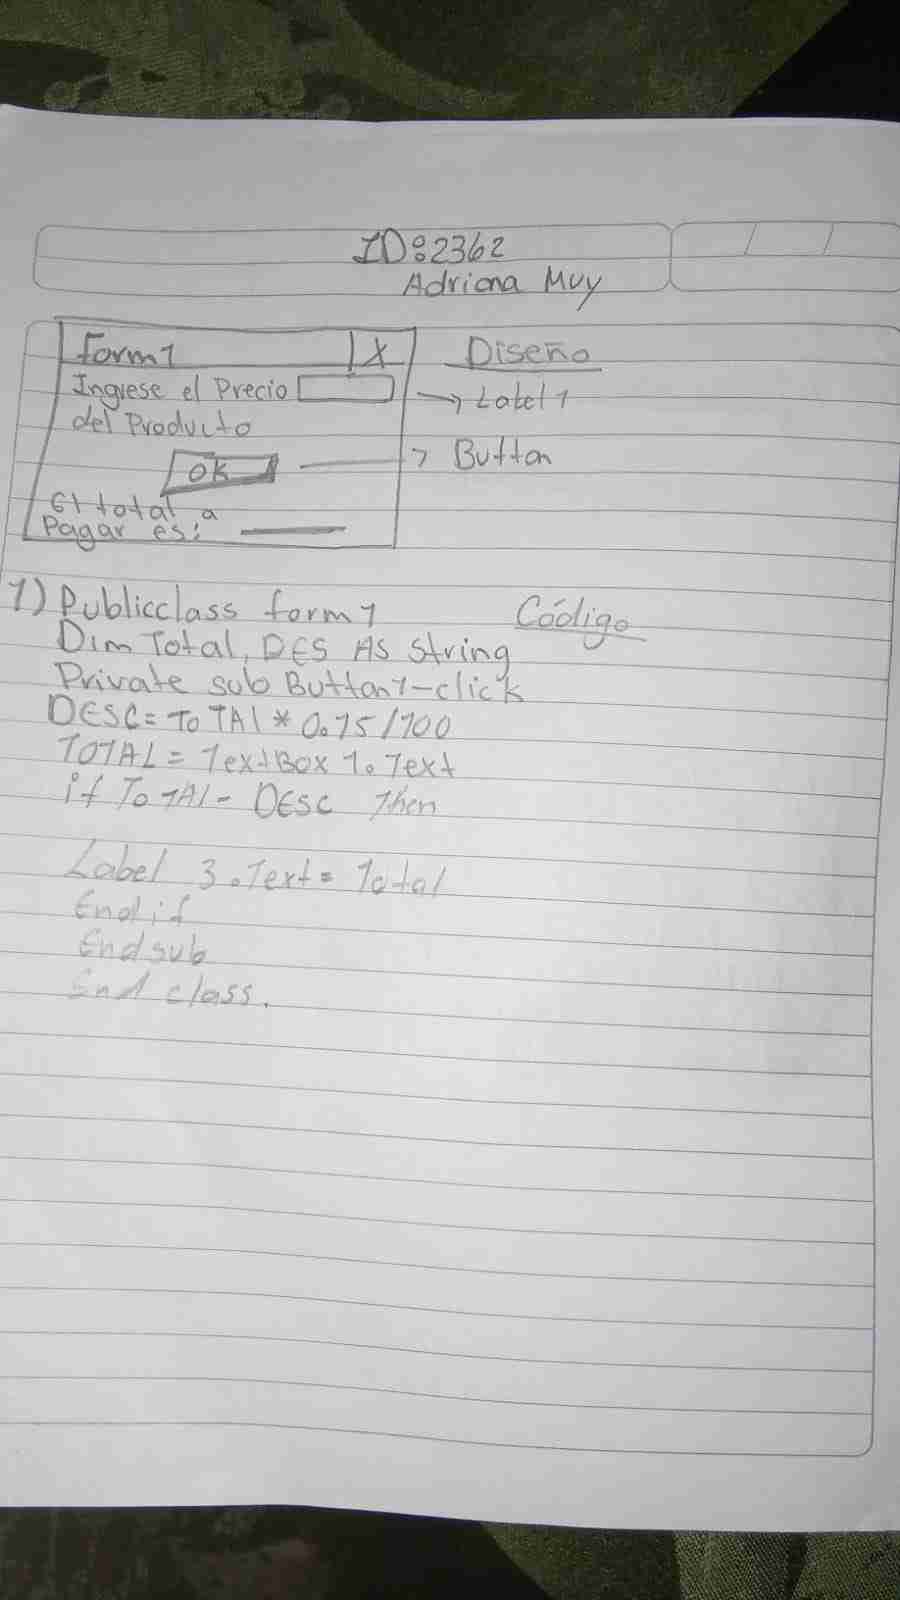 ID:2362
Adriana Muy
Form1 X
Diseño
Ingrese el Precio
del Producto
→ Label 1
OK
→ Button
El total a
Pagar es:
1) Publicclass form 1
Código
Dim Total, DES AS String
Private sub Button1-click
DESC= TOTAl * 0.15/100
TOTAL = TextBox 1. Text
if TOTAl - DESC Then
Label 3.Text = Total
End if
End sub
End class.